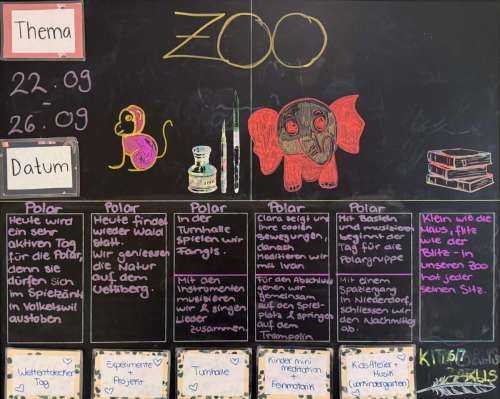 Thema
ZOO
22.09
-
26.09
Datum
Polar
Heute wird
ein sehr
aktiven Tag
für die Polar,
denn sie
dürfen sich
im Spielzänk
in Volketswil
austoben
Polar
Heute findet
wieder Wald
statt.
Wir geniessen
die Natur
auf dem
Uetliberg.
Polar
In der
Turnhalle
spielen wir
Fangis.
Mit den
Instrumenten
musizieren
wir & singen
Lieder
zusammen.
Polar
Clara zeigt uns
ihre coolen
Bewegungen,
danach
Meditieren wir
mit Ivan
Für den Abschluss
gehen wir
gemeinsam
auf den Spiel-
platz & springen
auf dem
Trampolin
Polar
Mit Basteln
und musizieren
beginnt der
Tag für die
Polargruppe
Mit einem
Spaziergang
in Niederdorf,
schliessen wir
den Nachmittag
ab.
Klein wie die
Maus, flitz
wie der
Blitz - in
unseren Zoo
hat jeder
seinen Sitz.
Weltentdecker
Tag
Experimente
+
Projekt
Turnhalle
Kinder mini
meditation
+
Feinmotorik
Kids Atelier +
Musik
(Vorkindergarten)
6/7